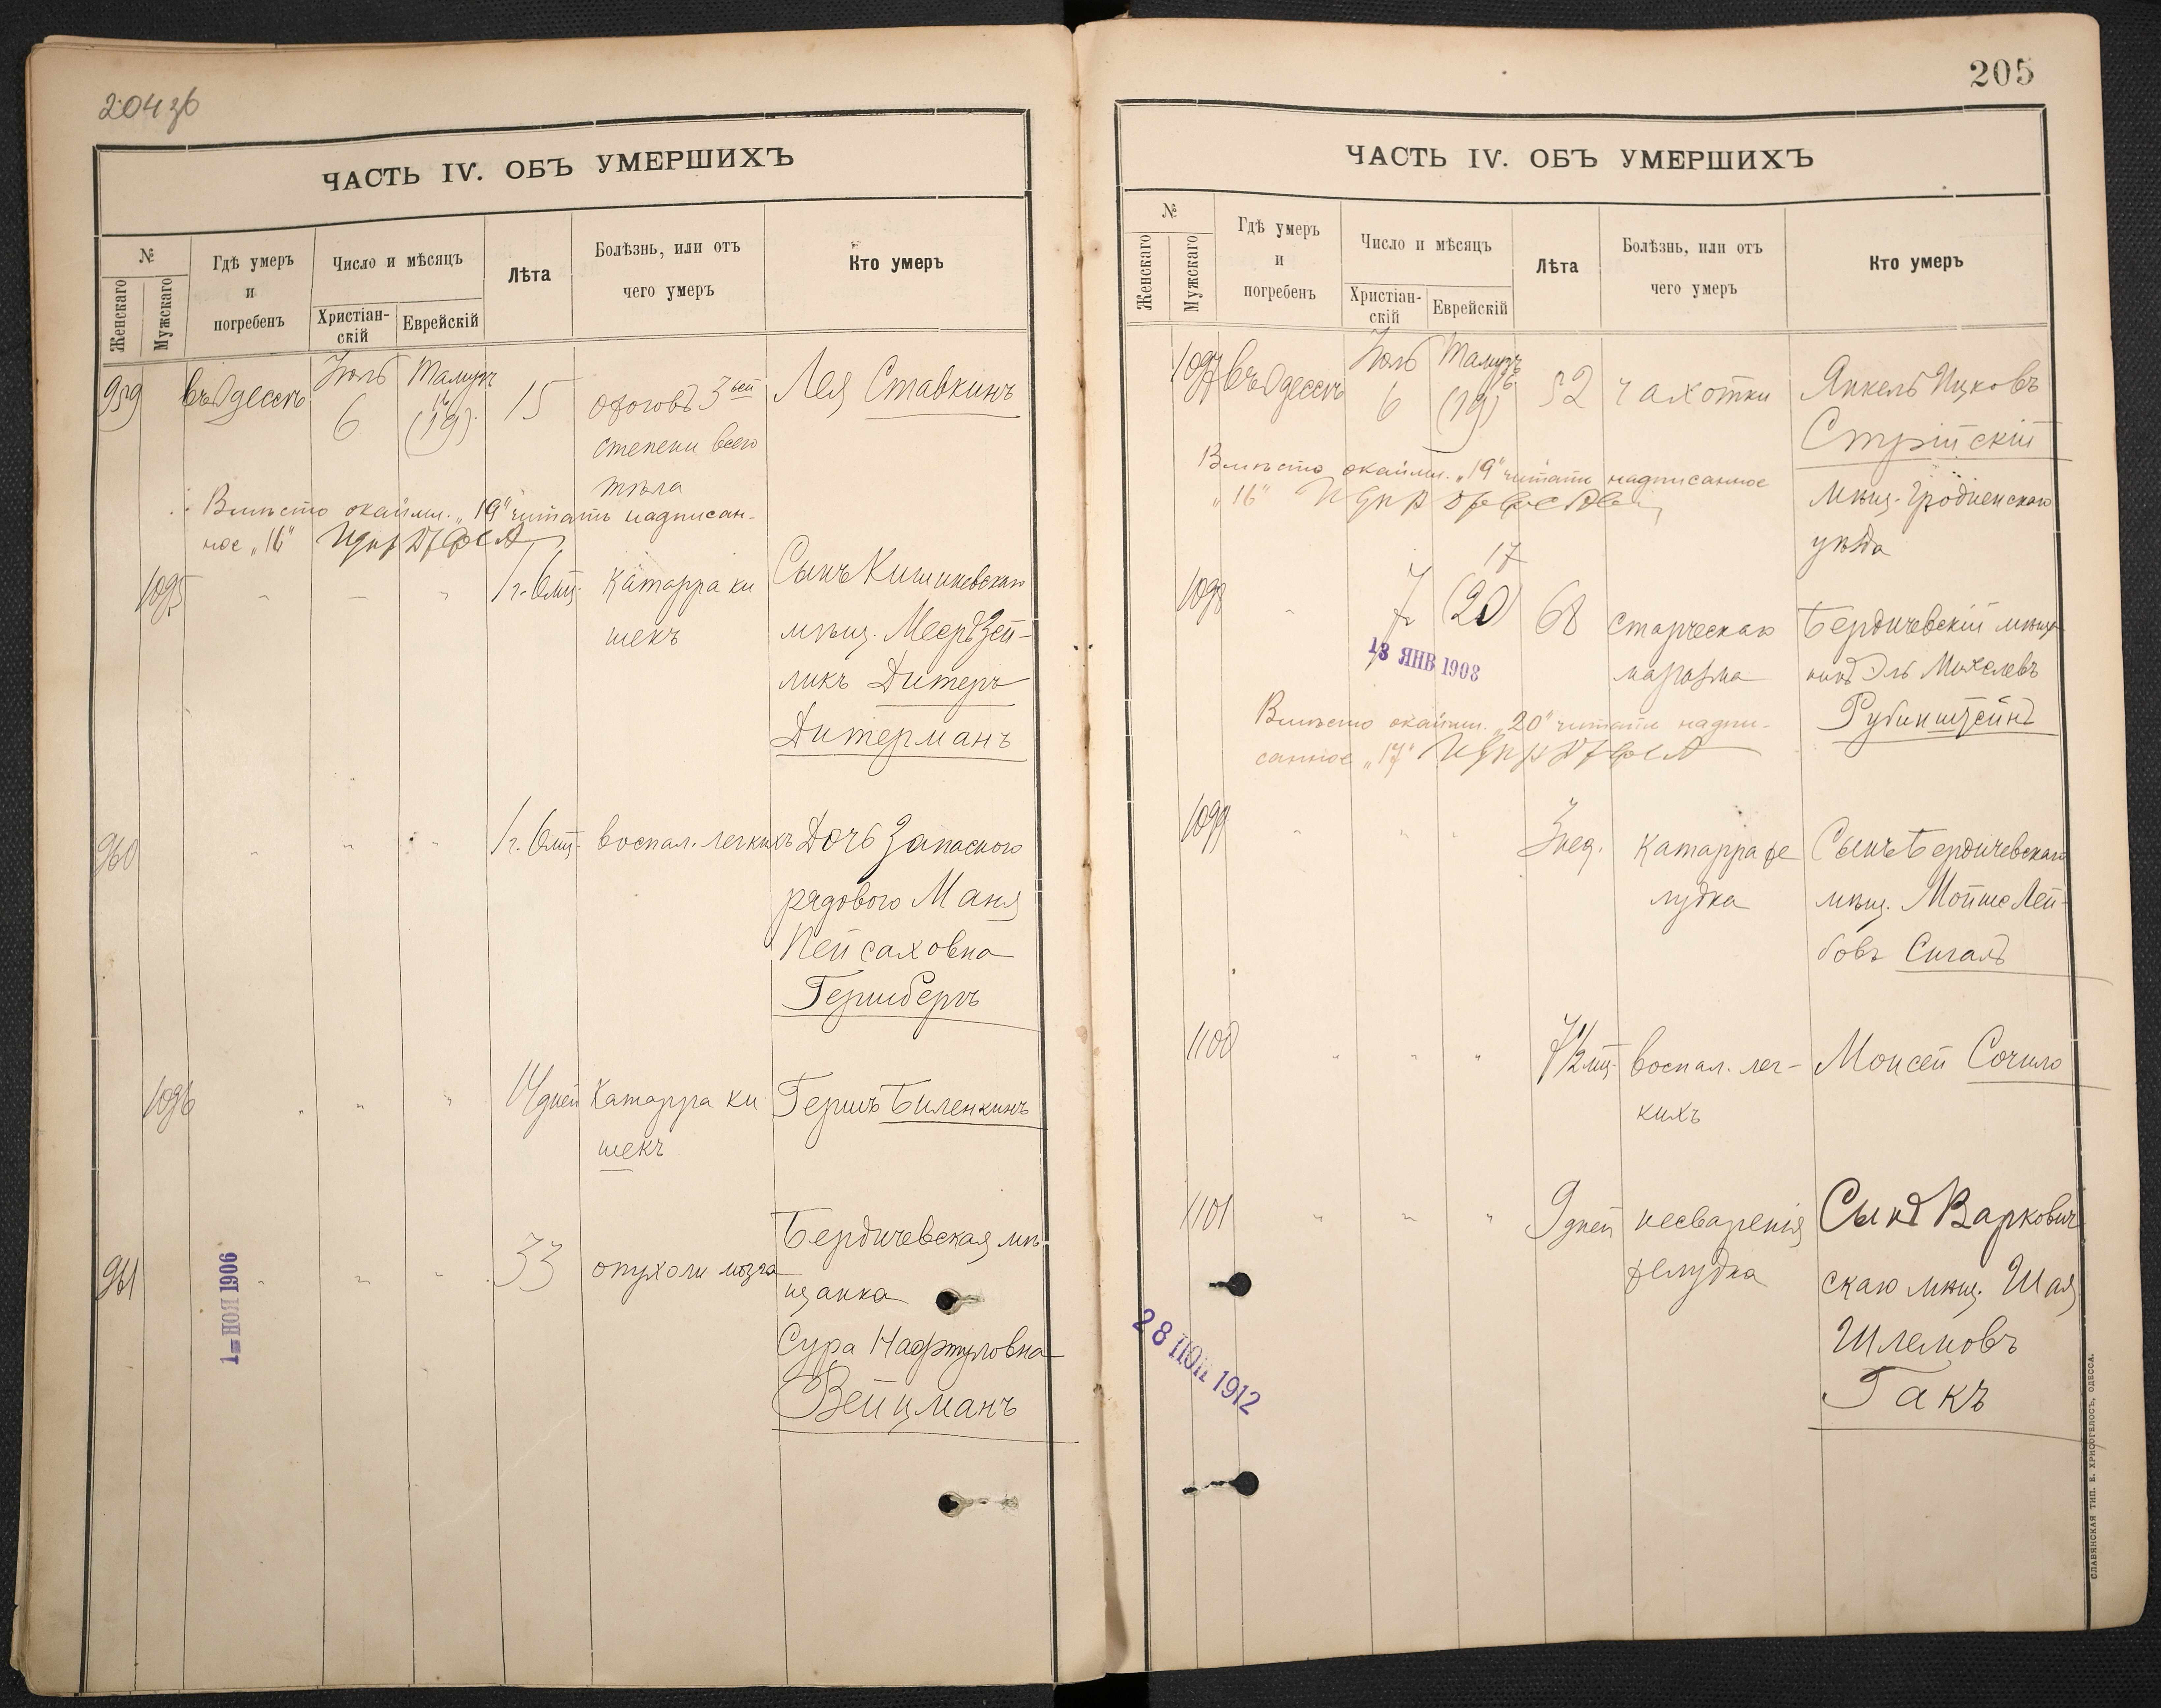 204 зб
ЧАСТЬ IV. ОБЪ УМЕРШИХЪ
№
Женскаго
Мужскаго
Гдѣ умеръ
и
погребенъ
Число и мѣсяцъ
Христіан-
скій
Еврейскій
Лѣта
Болѣзнь, или отъ
чего умеръ
Кто умеръ
959 въ Одессѣ Іюль 6 Тамузъ 16 (19) 15 ожоговъ 3ьей Лея Ставкинъ
степени всего
тѣла
Вмѣсто окайми. „19" читать надписан-
ное „16"
1095 " — " 1 г. 6 мц. Катарра ки Сынъ Кишиневскаго
шекъ мѣщ. Мееръ Зей-
ликъ Дитеръ
Дитерманъ
960 " " " 1 г. 6 мц. воспал. легкихъ Дочь Запасного
рядового Маня
Пейсаховна
Гершбергъ
1096 " " " 14 дней Катарра ки Гершъ Биленкинъ
шекъ
961 " " " 33 опухоли мозга Бердичевская мѣ
щанка
Сура Нафтуловна
Вейцманъ
1 НОЯ 1906
205
ЧАСТЬ IV. ОБЪ УМЕРШИХЪ
№
Женскаго
Мужскаго
Гдѣ умеръ
и
погребенъ
Число и мѣсяцъ
Христіан-
скій
Еврейскій
Лѣта
Болѣзнь, или отъ
чего умеръ
Кто умеръ
1097 въ Одессѣ Іюль 6 Тамузъ 16 (19) 52 чахотки Янкель Ицковъ
Стрійскій
мѣщ. Гродненскаго
уѣзда
Вмѣсто окайми. „19" читать надписанное
„16"
1098 " 7 17 (20) 68 старческаго Бердичевскій мѣща
маразма нинъ Эль Михелевъ
Рубинштейнъ
13 ЯНВ 1908
Вмѣсто окайми. „20" читать надпи-
санное „17"
1099 " " " 3 нед. Катарра же Сынъ Бердичевскаго
лудка мѣщ. Мойше Лей-
бовъ Сигалъ
1100 " " " 7 1/2 мц. воспал. лег- Моисей Сочило
кихъ
1101 " " " 9 дней несваренія Сынъ Варкович
желудка скаго мѣщ. Шая
Шлемовъ
Гакъ
28 1912
СЛАВЯНСКАЯ ТИП. Е. ХРИСОГЕЛОСЪ, ОДЕССА.